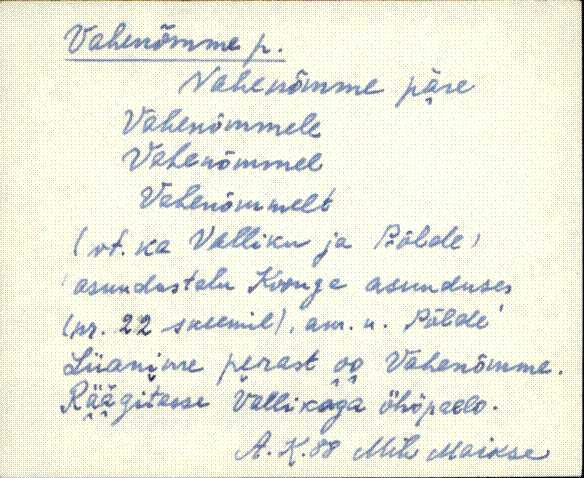 Vahenõmme p.
Vahenõmme pä̭re
Vahenõmmele
Vahenõmmel
Vahenõmmelt
(vt. ka Valliku ja Põlde)
asundustalu Koonga asunduses
(nr. 22 skeemil), am. n. Põlde
Liianime perast o̭o̭ Vahenõmme.
Rä̭ä̭gitasse Vallikaga ühöpaelo.
A. K. 88 Mih Maikse